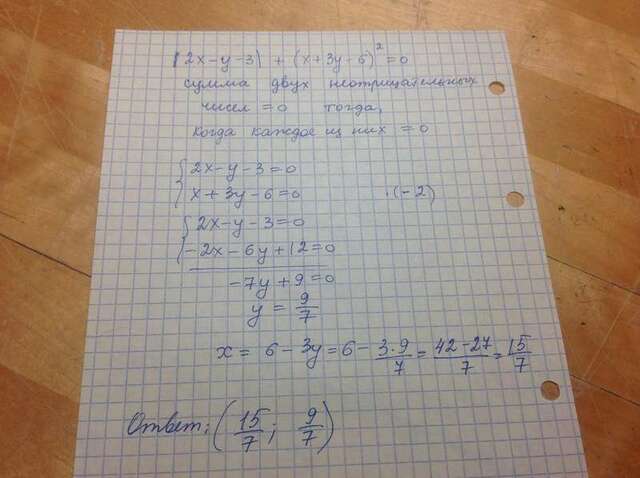 |2x-y-3| + (x+3y-6)² = 0
сумма двух неотрицательных
чисел = 0 тогда,
когда каждое из них = 0
{ 2x-y-3=0
x+3y-6=0 ·(-2)
{ 2x-y-3=0
-2x-6y+12=0
-7y+9=0
y = 9/7
x = 6-3y = 6 - 3·9/7 = 42-27/7 = 15/7
Ответ: (15/7; 9/7)